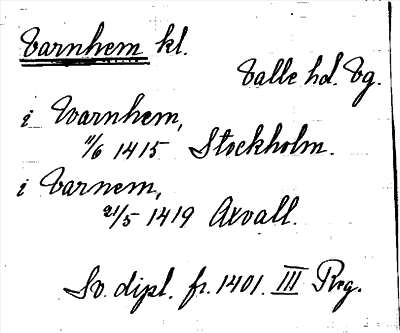 Varnhem kl.
Valle hd. Vg.
i Warnhem,
11/6 1415 Stockholm.
i Varnem,
21/5 1419 Axvall.
Sv. dipl. fr. 1401. III Reg.